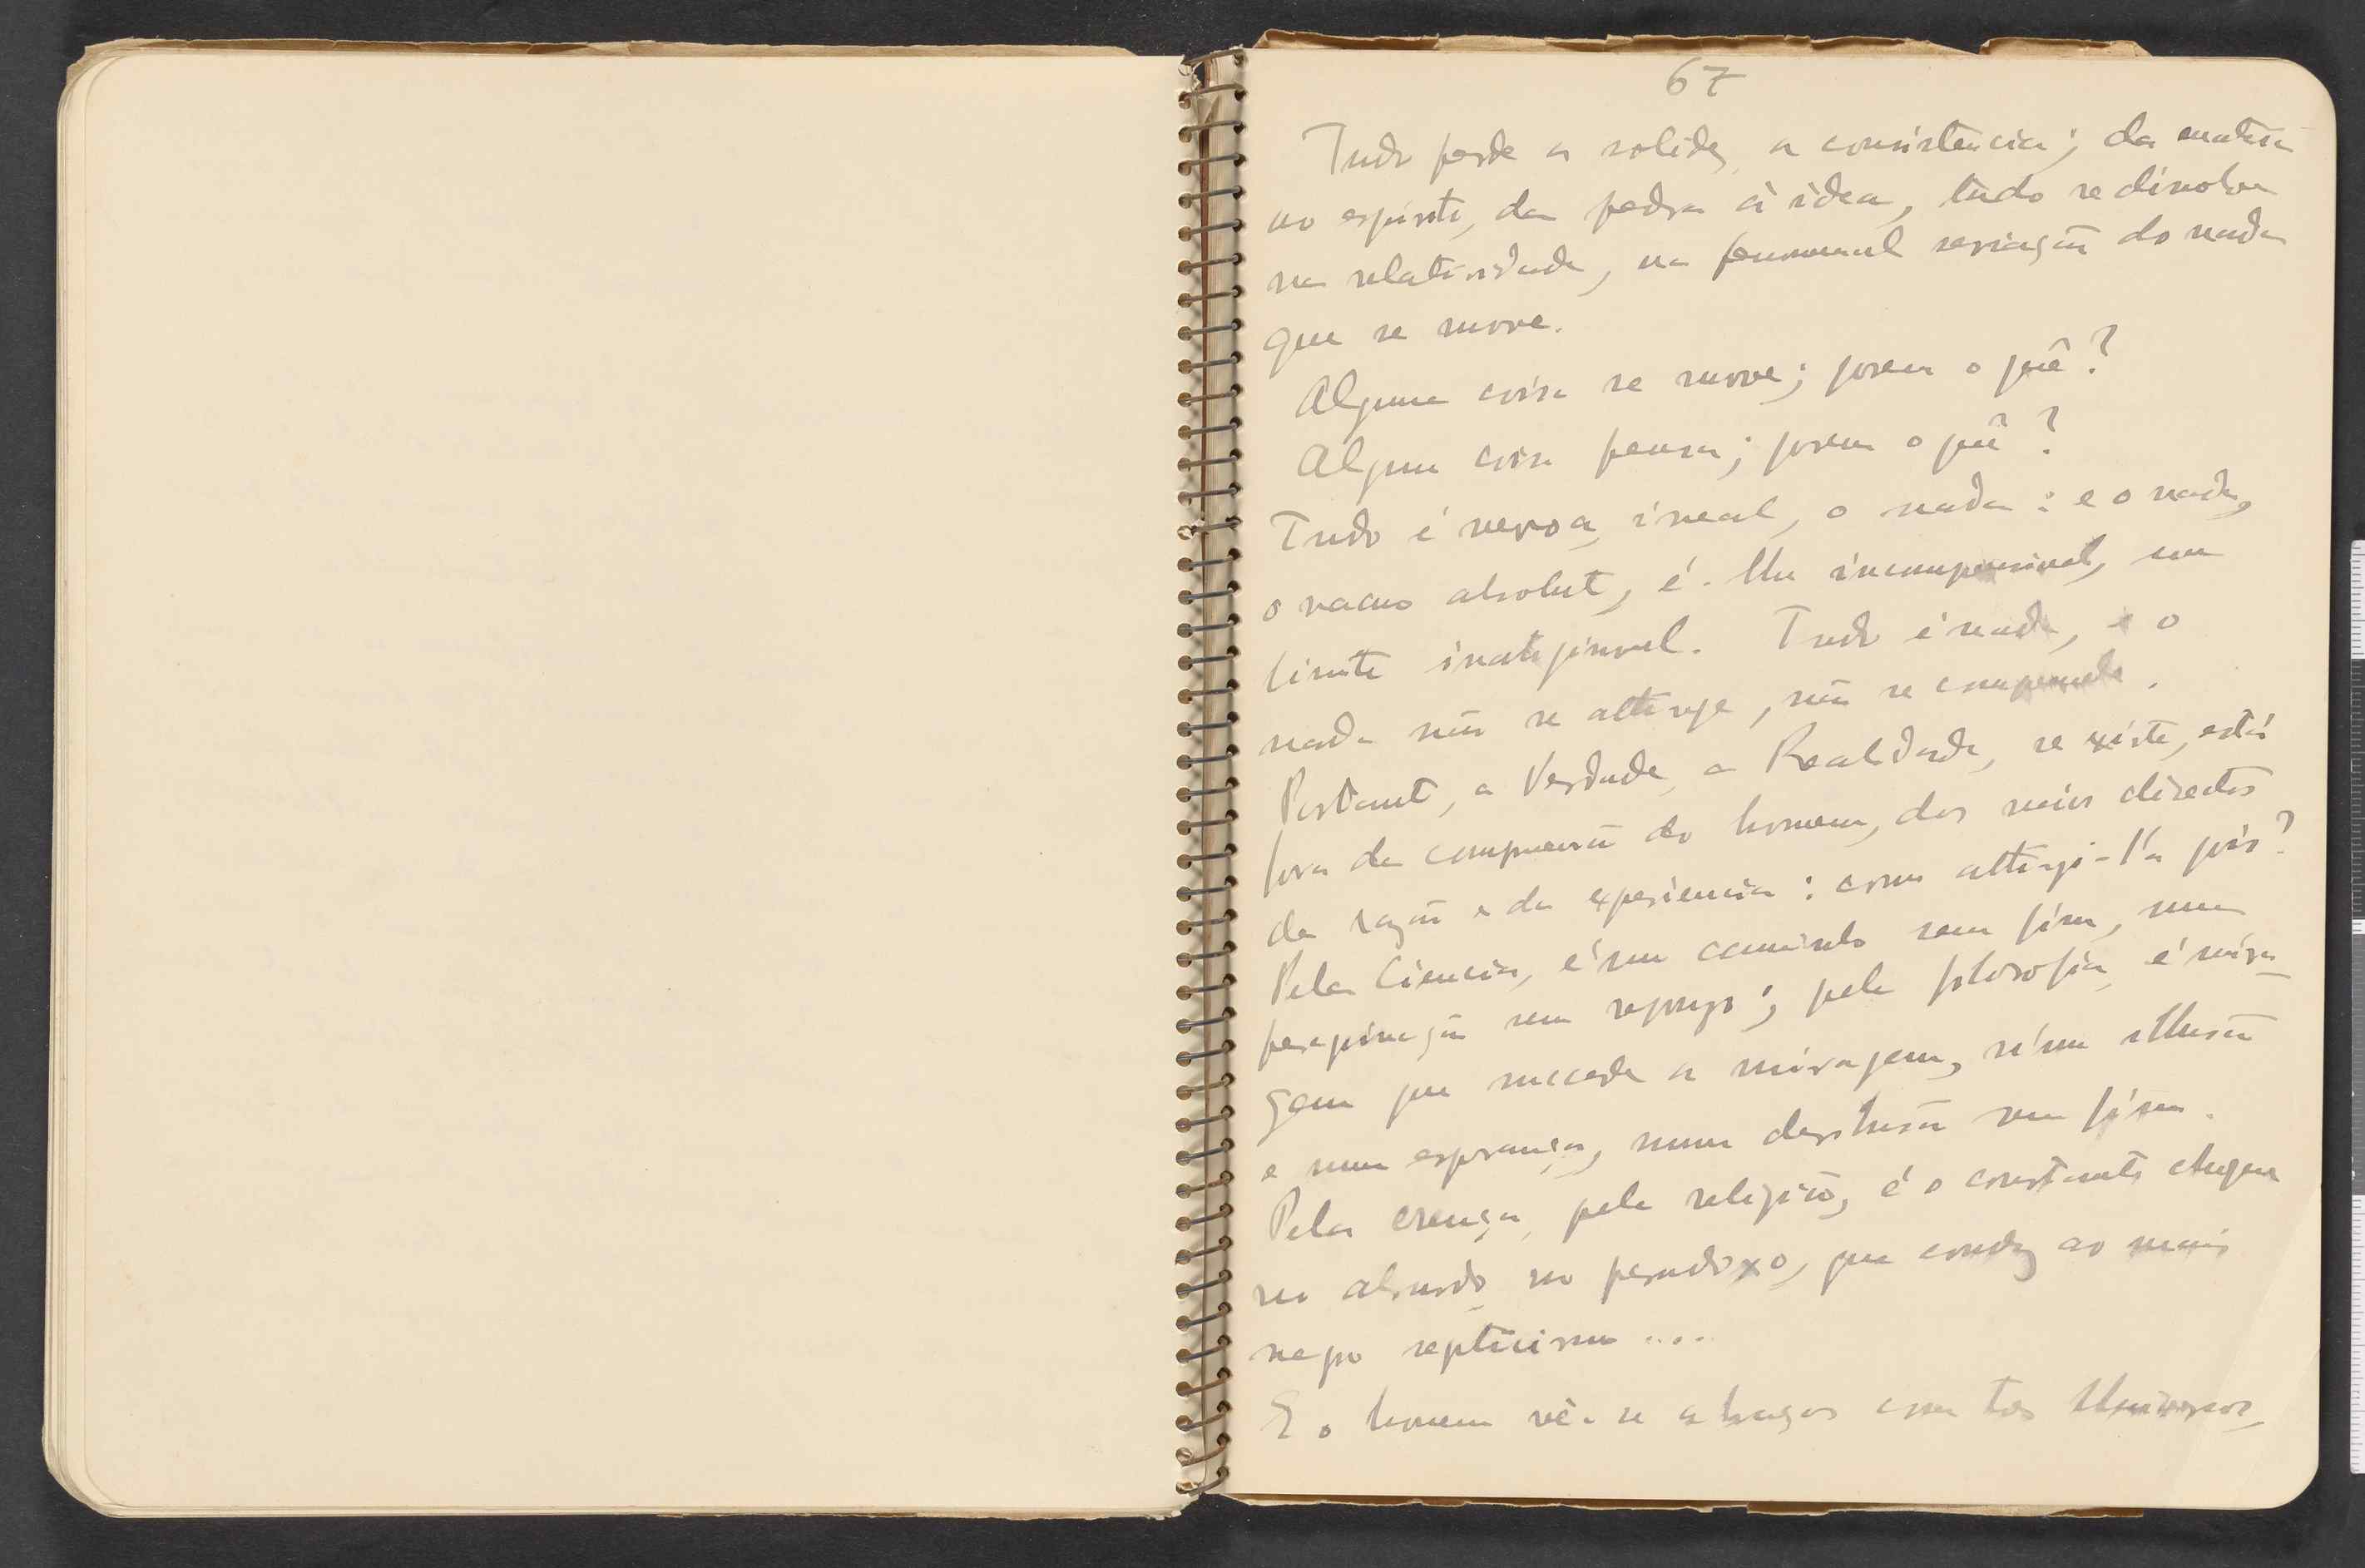 67
Tudo perde a solidez, a consistencia; da materia
ao espirito, da pedra à idea, tudo se dissolve
na relatividade, na fenomenal seriação do nada
que se move.
Alguma coisa se move; porem o quê?
Alguma coisa pensa; porem o quê?
Tudo é nevoa, irreal, o nada: e o nada,
o vacuo absoluto, é. Um incompreensivel, um
limite inatingivel. Tudo é nada, e o
nada não se attinge, não se comprehende.
Portanto, a Verdade, a Realidade, se existe, está
fora da compreensão do homem, dos meios directos
da razão e da experiencia: como attingi-l'a pois?
Pela Ciencia, é um caminho sem fim, uma
peregrinação sem repouso; pela filosofia, é mira-
gem que succede a miragem, n'uma illusão
e uma esperança, numa desilusão sem fim.
Pela crença, pela religião, é o constante chegar
no absurdo, no paradoxo, que conduz ao mais
negro septicismo ....
E o homem vê-se a braços com tres Universos,